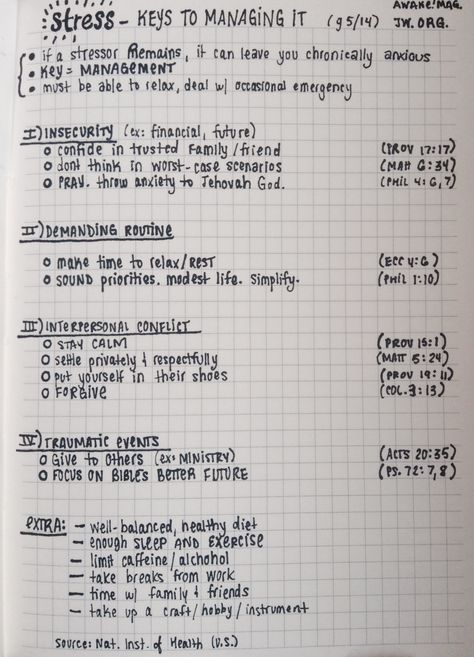 AWAKE! MAG.
Stress - KEYS TO MANAGING IT (g 5/14) JW.ORG.
• if a stressor Remains, it can leave you chronically anxious
• Key = MANAGEMENT
• must be able to relax, deal w/ occasional emergency
I) INSECURITY (ex: financial, future)
o confide in trusted family/friend (PROV 17:17)
o dont think in worst-case scenarios (Matt 6:34)
o PRAY. throw anxiety to Jehovah God. (Phil 4:6,7)
II) DEMANDING ROUTINE
o make time to relax/REST (Ecc 4:6)
o SOUND priorities. modest life. Simplify. (Phil 1:10)
III) INTERPERSONAL CONFLICT
o STAY CALM (PROV 15:1)
o settle privately & respectfully (MATT 5:24)
o put yourself in their shoes (PROV 19:11)
o FORGIVE (COL. 3:13)
IV) TRAUMATIC EVENTS
o Give to others (ex: MINISTRY) (ACTS 20:35)
o FOCUS ON BIBLE'S BETTER FUTURE (PS. 72:7,8)
EXTRA: - well-balanced, healthy diet
- enough SLEEP AND EXERCISE
- limit caffeine/alchohol
- take breaks from work
- time w/ family & friends
- take up a craft/hobby/instrument
Source: Nat. Inst. of Health (U.S.)